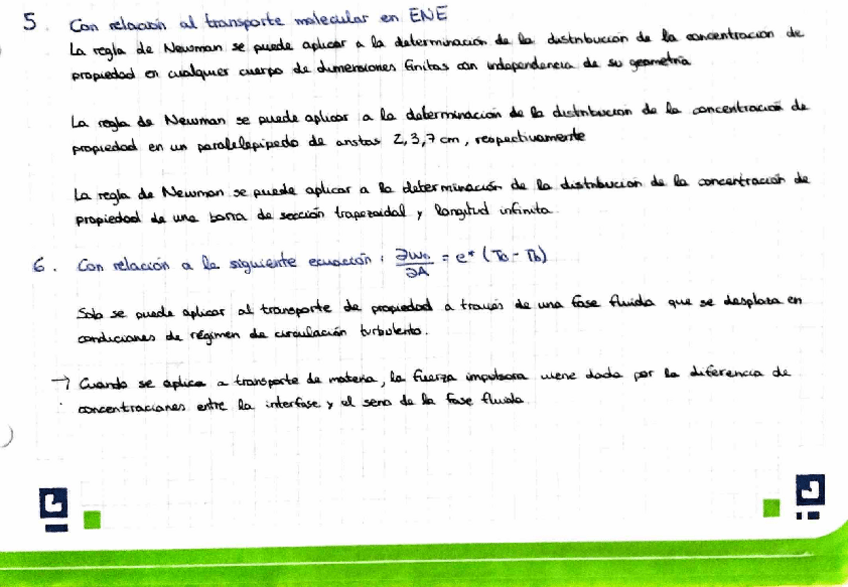 5. Con relación al transporte molecular en ENE
La regla de Newman se puede aplicar a la determinación de la distribución de la concentración de
propiedad en cualquier cuerpo de dimensiones finitas con independencia de su geometría
La regla de Newman se puede aplicar a la determinación de la distribución de la concentración de
propiedad en un paralelepípedo de aristas 2, 3, 7 cm, respectivamente
La regla de Newman se puede aplicar a la determinación de la distribución de la concentración de
propiedad de una barra de sección trapezoidal y longitud infinita.
6. Con relación a la siguiente ecuación: ∂We/∂A = e* (Ta - Tb)
Solo se puede aplicar al transporte de propiedad a través de una fase fluida que se desplaza en
condiciones de régimen de circulación turbulento.
→ Cuando se aplica a transporte de materia, la fuerza impulsora viene dada por la diferencia de
concentraciones entre la interfase y el seno de la fase fluida.